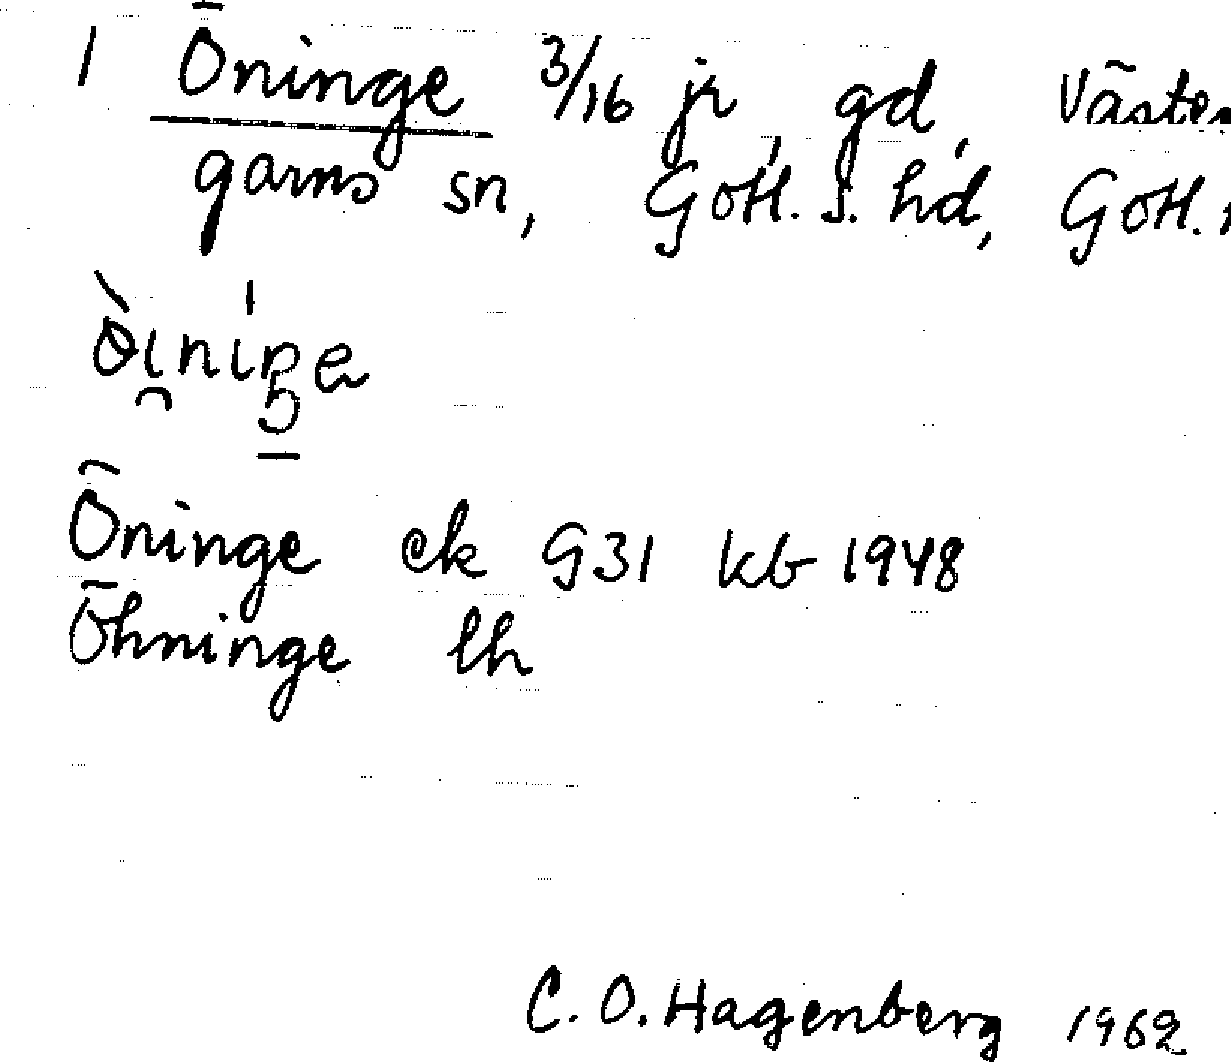 1 Öninge 3/16 jr, gd, Väster
garns sn, Gotl. s. hd, Gotl.
Öninge ek G31 kb 1948
Öhninge lh
C. O. Hagenberg 1962